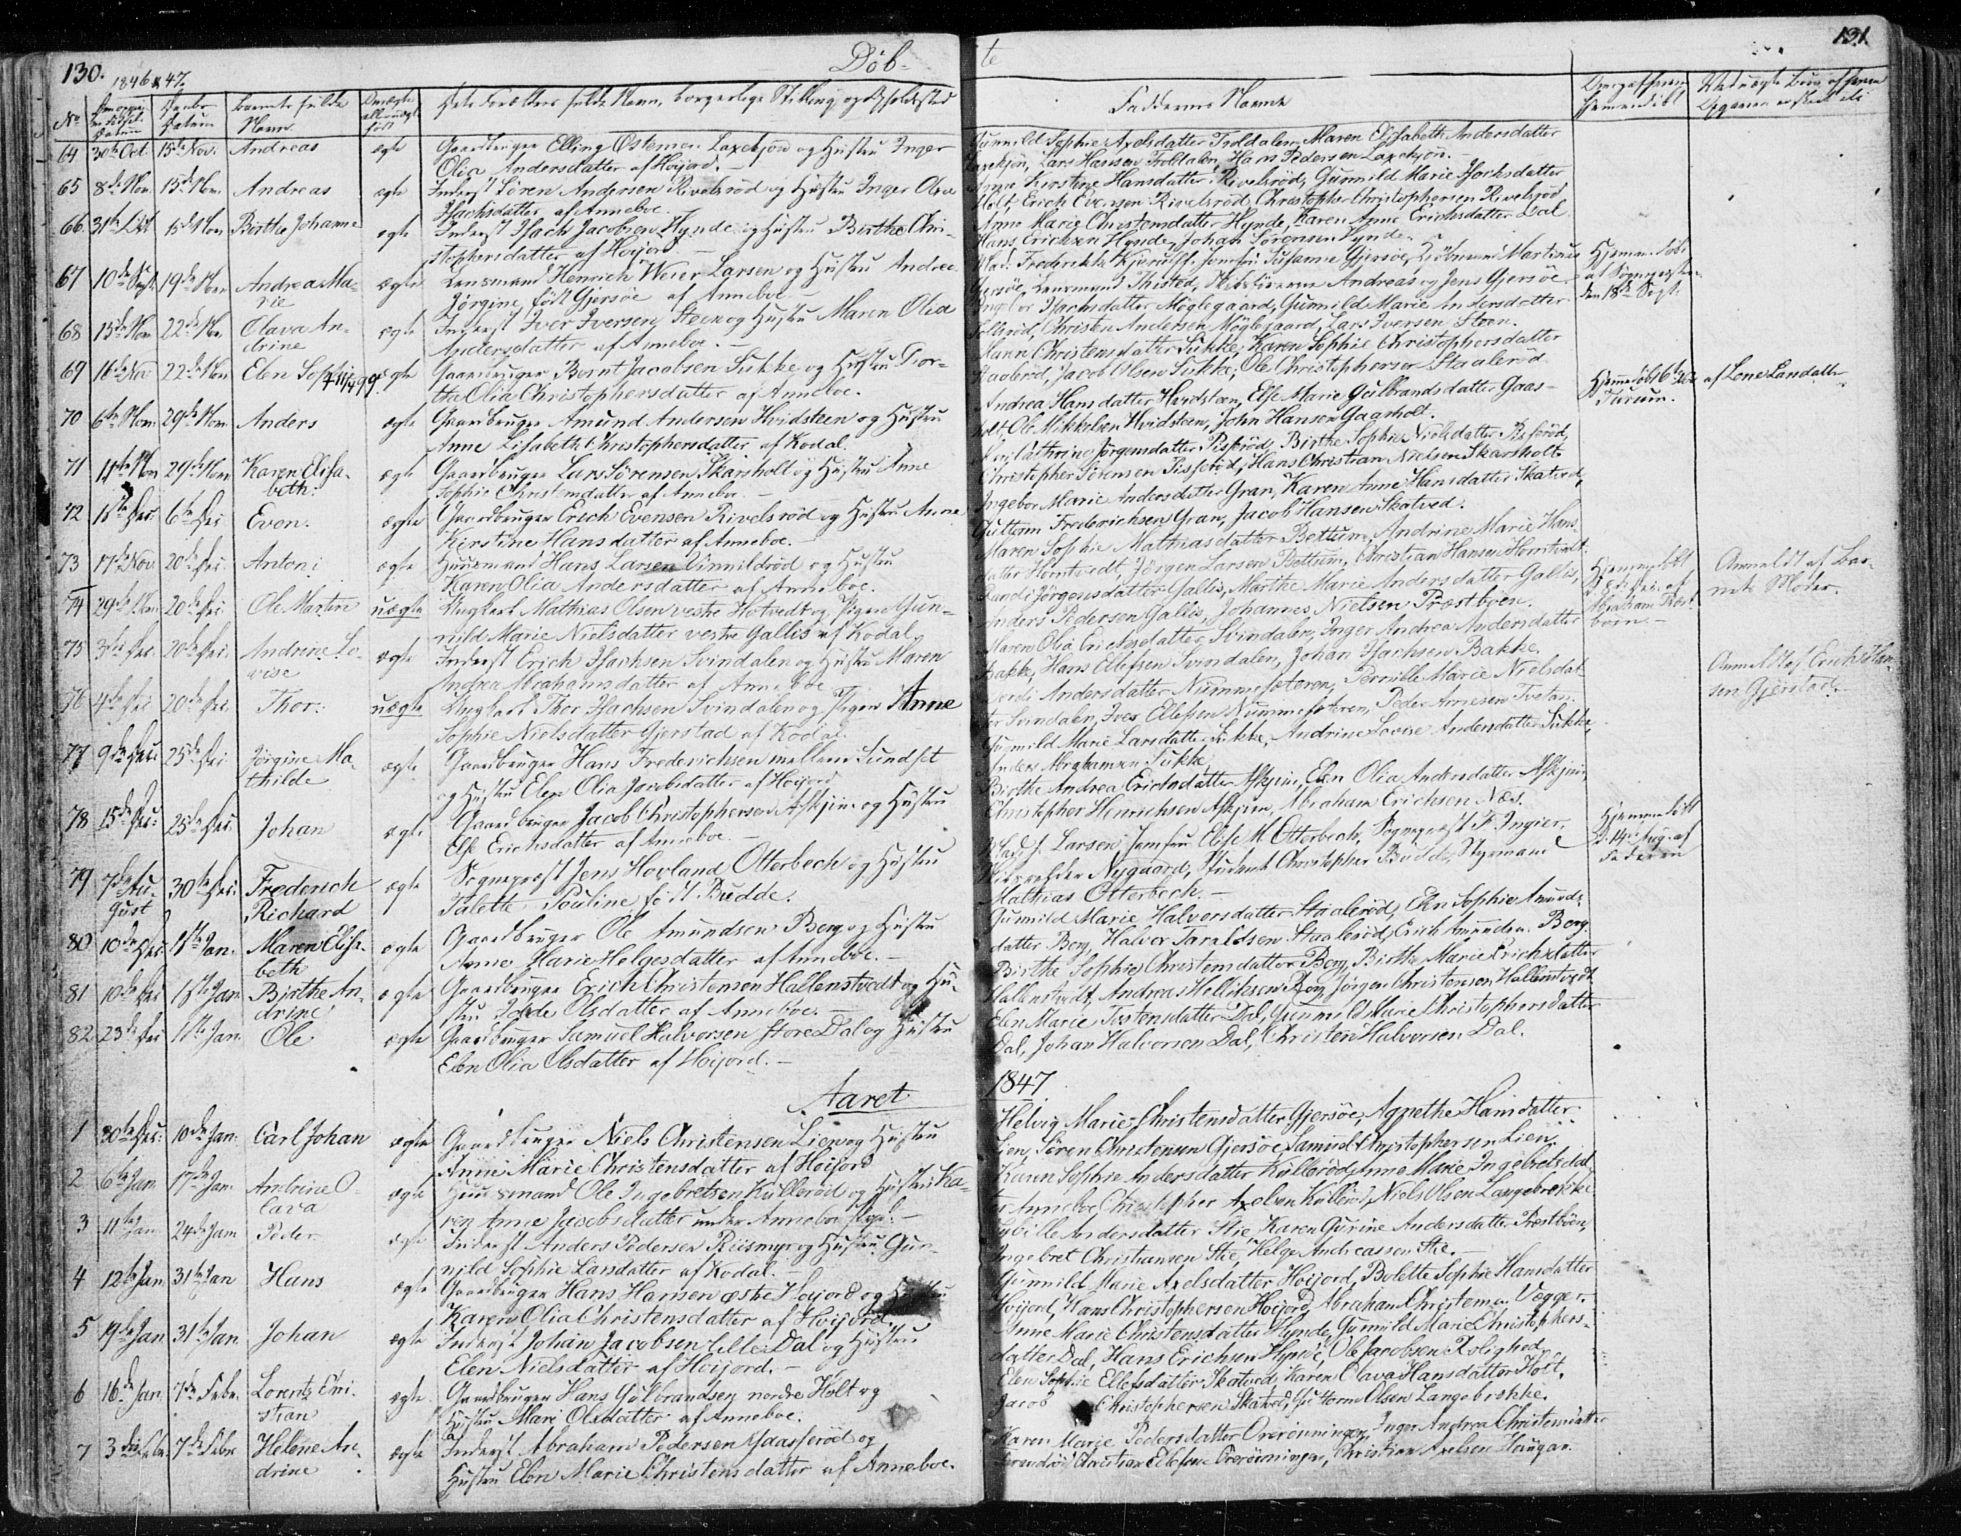 130.
1846 & 47.
Døb-
te
131
No
Datum
Barnets fulde
Navn
Forældres fulde Navn, borgerlige Stilling og Opholdsted
Faddernes Navne
64 30te Oct. 15de Nov. Andreas ægte Gaardbruger Elling Ostensen Laxesjøn og Hustru Inger
Olia Andersdatter af Høijord. -
Gunnild Sophie Axelsdatter Troldalen, Maren Elisabeth Andersdatter
Laxesjøn, Lars Hansen Troldalen, Hans Pedersen Laxesjøn. -
65 8de Nov. 15de Nov. Andreas ægte Inderst Søren Andersen Rivelsrød og Hustru Inger Olea
Isachsdatter af Anneboe.
Anne Kirstine Hansdatter Rivelsrød, Gunnild Marie Isachsdatter
Holt, Erich Evensen Rivelsrød, Christopher Christophersen Rivelsrød
66 31te Oct. 15de Nov. Birthe Johanne ægte Inderst Isach Jacobsen Hynde og Hustru Birthe Chri-
stophersdatter af Høijord -
Anne Marie Christensdatter Hynde, Karen Anne Erichsdatter Dal
Hans Erichsen Hynde, Johan Sørensen Hynde.
67 10de Sept. 19de Nov. Andrea Ma-
rie ægte Lensmand Henrich Weier Larsen og Hustru Andrea
Jørgine, født Gjersøe af Anneboe
Mad. Frederikke Kjerulff, Jomfru Susanne Gjersøe, Kjøbmand Martinus
Gjersøe, Lensmand Thisted, Andreas og Jens Gjersøe
den 18de Sept.
68 15de Nov. 22de Nov. Olava An-
drine ægte Inderst Iver Iversen Steen og Hustru Maren Olia
Andersdatter af Anneboe. -
Isachsdatter Møglegaard, Gunnild Marie Andersdatter
Christen Andersen Møglegaard, Lars Iversen Steen.
69 16de Nov. 22de Nov. Elen Soph ægte Gaardbruger Bernt Jacobsen Sukke og Hustru Dor-
thea Olia Christophersdatter af Anneboe.
Maren Christensdatter Sukke, Karen Sophie Christophersdatter
Staalerød, Jacob Olsen Sukke, Ole Christophersen Staalerød
70 6te Nov. 29de Nov. Anders ægte Gaardbruger Amund Andersen Hvidsteen og Hustru
Anne Lisabeth Christophersdatter af Kodal.
Andrea Hansdatter Hvidsteen, Else Marie Gulbrandsdatter Gaas-
holt, Ole Mikkelsen Hvidsteen, John Hansen Gaasholt.
af Lene Landatter
71 11te Nov. 29de Nov. Karen Elisa-
beth. ægte Gaardbruger Lars Sørensen Skarsholt og Hustru Anne
Sophie Christensdatter af Anneboe -
Cathrine Jørgensdatter Pisserød, Birthe Sophie Nielsdatter Pisserød,
Christopher Sørensen Pisserød, Hans Christian Nielsen Skarsholt
72 1ste Dec. 6te Dec. Even. ægte Gaardbruger Erich Evensen Rivelsrød og Hustru Anne
Kirstine Hansdatter af Anneboe. -
Ingebor Marie Andersdatter Gran, Karen Anne Hansdatter Skatved,
Guttorm Frederichsen Gran, Jacob Hansen Skatved.
73 17de Nov. 20de Dec. Anton ægte Huusmand Hans Larsen Vinnildrød og Hustru
Karen Olia Andersdatter af Anneboe.
Maren Sophie Mathiasdatter Bettum, Andrine Marie Hans
datter Homtvedt, Jørgen Larsen Bettum, Christian Hansen Homtvedt
74 29de Nov. 20de Dec. Ole Martin uægte Ungkarl Mathias Olsen vestre Hotvedt og Pigen Gun-
nild Marie Nielsdatter vestre Gallis af Kodal.
Randi Jørgensdatter Gallis, Marthe Marie Andersdatter Gallis,
Anders Pedersen Gallis, Johannes Nielsen Præstbøen.
Hjemmedøbt
Abraham Præst
bøen. -
Anmeldt af Bar-
nets Moder.
75 3de Dec. 20de Dec. Andrine Lo-
vise ægte Inderst Erich Isachsen Svindalen og Hustru Maren
Andrea Abrahamsdatter af Anneboe
Maren Olia Erichsdatter Svindalen, Inger Andrea Andersdatter
Bakke, Hans Ellefsen Svindalen, Johan Isachsen Bakke.
76 4de Dec. 20de Dec. Thor. uægte Ungkarl Thor Isachsen Svindalen og Pigen Anne
Sophie Nielsdatter Gjerstad af Kodal.
Andersdatter Nummesæteren, Pernille Marie Nielsdat
ter Svindalen, Iver Ellefsen Nummesæteren, Peder Arnesen Tvetan
Anmeldt af Erich Han-
sen Gjerstad.
77 9de Dec. 25de Dec. Jørgine Ma-
thilde ægte Gaardbruger Hans Frederichsen mellem Sundset
og Hustru Elen Olia Jacobsdatter af Høijord
Gunnild Marie Larsdatter Sukke, Andrine Lovise Andersdatter Sukke,
Anders Abrahamsen Sukke
78 15de Dec. 25de Dec. Johan ægte Gaardbruger Jacob Christophersen Askjim og Hustru
Else Erichsdatter af Anneboe. -
Birthe Andrea Erichsdatter Askjim, Elen Olia Andersdatter Askjim
Christopher Henrichsen Askjim, Abraham Erichsen Næs.
79 7de Au-
gust 30te Dec. Frederich
Richard ægte Sognepræst Jens Hovland Otterbech og Hustru
Palette Pouline født Budde.
Mad. J. Larsen, Jomfru Elise M. Otterbech, Sognepræst F. Ingier.
Nygaard, Student Christopher Budde, Styrmand
Mathias Otterbech. -
Hjemmedøbt
d. 14de Aug. af
Faderen
80 10de Dec. 1ste Jan. Maren Elisa-
beth ægte Gaardbruger Ole Amundsen Berg og Hustru
Anne Marie Helgesdatter af Anneboe. -
Gunnild Marie Halvorsdatter Staalerød, Elen Sophie Amunds
datter Berg, Halvor Taraldsen Staalerød, Erich Amundsen Berg
81 10de Dec. 1ste Jan. Birthe An-
drine ægte Gaardbruger Erich Christensen Hallenstvedt og Hu-
stru Olsdatter af Anneboe. -
Birthe Sophie Christensdatter Berg, Birthe Marie Erichsdatter
Hallenstvedt, Andreas Jørgen Christensen Hallenstvedt
82 23de Dec. 1ste Jan. Ole ægte Gaardbruger Samuel Halvorsen store Dal og Hustru
Elen Olia Olsdatter af Høijord. -
Elen Marie Tostensdatter Dal, Gunnild Marie Christophersdatter
Dal, Johan Halvorsen Dal, Christen Halvorsen Dal.
Aaret 1847
1 20de Dec. 10de Jan. Carl Johan ægte Gaardbruger Niels Christensen Lien og Hustru
Anne Marie Christensdatter af Høijord
Helvig Marie Christensdatter Gjersøe, Agnethe Hansdatter
Lien, Søren Christensen Gjersøe, Samuel Christophersen Lien.
2 6te Jan. 17de Jan. Andrine O-
lava ægte Huusmand Ole Ingebretsen Kullerød og Hustru Ka-
ren Anne Jacobsdatter under Anneboe Sogn. -
Karen Sophie Andersdatter Kullerød, Anne Marie Ingebretsdat
ter Anneboe, Christopher Axelsen Kullerød, Niels Olsen Langebrekke
3 11te Jan. 24de Jan. Peder ægte Inderst Anders Pedersen Riismyr og Hustru Gun-
nild Sophie Larsdatter af Kodal.
Andersdatter Stie, Karen Gurine Andersdatter Præstbøen,
Ingebret Christiansen Stie, Helge Andreassen Stie. -
4 12te Jan. 31te Jan. Hans ægte Gaardbruger Hans Hansen østre Høijord og Hustru
Karen Olia Christensdatter af Høijord.
Gunnild Marie Axelsdatter Høijord, Bolette Sophie Hansdatter
Høijord, Hans Christophersen Høijord, Abraham Christensen Vegger.
5 19de Jan. 31te Jan. Johan ægte Inderst Johan Jacobsen lille Dal og Hustru
Elen Nielsdatter af Høijord. -
Anne Marie Christensdatter Hynde, Gunnild Marie Christophers-
datter Dal, Hans Erichsen Hynde, Ole Jacobsen Rolighed.
6 16de Jan. 7de Febr. Lorentz Chri-
stian ægte Gaardbruger Hans Gulbrandsen nordre Holt og
Hustru Mari Olsdatter af Anneboe.
Elen Sophie Ellefsdatter Skatved, Karen Olava Hansdatter Holt,
Jacob Christophersen Skatved, Guttorm Olsen Langebrekke.
7 3de Febr. 7de Febr. Helene An-
drine ægte Inderst Abraham Pedersen Gaasserød og
Hustru Elen Marie Christensdatter af Anneboe.
Karen Marie Pedersdatter Overønningen, Inger Andrea Christensdatter
Christian Ellefsen Overønningen, Christian Axelsen Haugan.